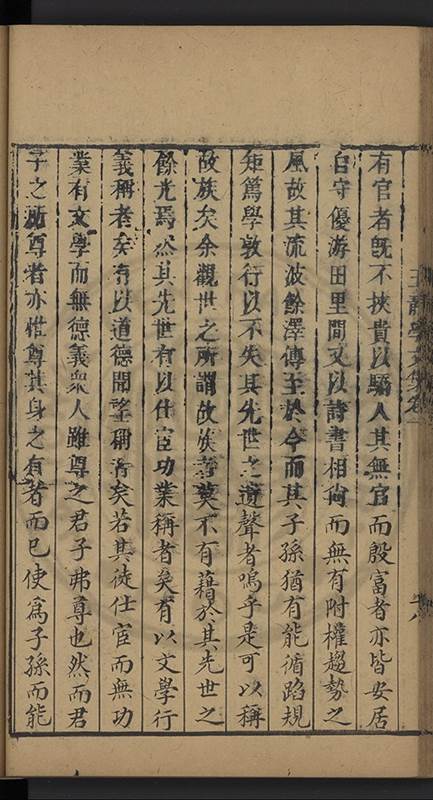 有官者旣不挾貴以驕人其無官而殷富者亦皆安居
自守優游田里間又以詩書相尙而無有附權趨勢之
風故其流波餘澤傳至於今而其子孫猶有能循蹈規
矩篤學敦行以不失其先世之遺聲者嗚乎是可以稱
故族矣余觀世之所謂故族者莫不有藉於其先世之
餘光焉然其先世有以仕宦功業稱者矣有以文學行
義稱者矣有以道德聞望稱者矣若其徒仕宦而無功
業有文學而無德義衆人雖尊之君子弗尊也然而君
子之所尊者亦惟尊其身之有者而已使爲子孫而能